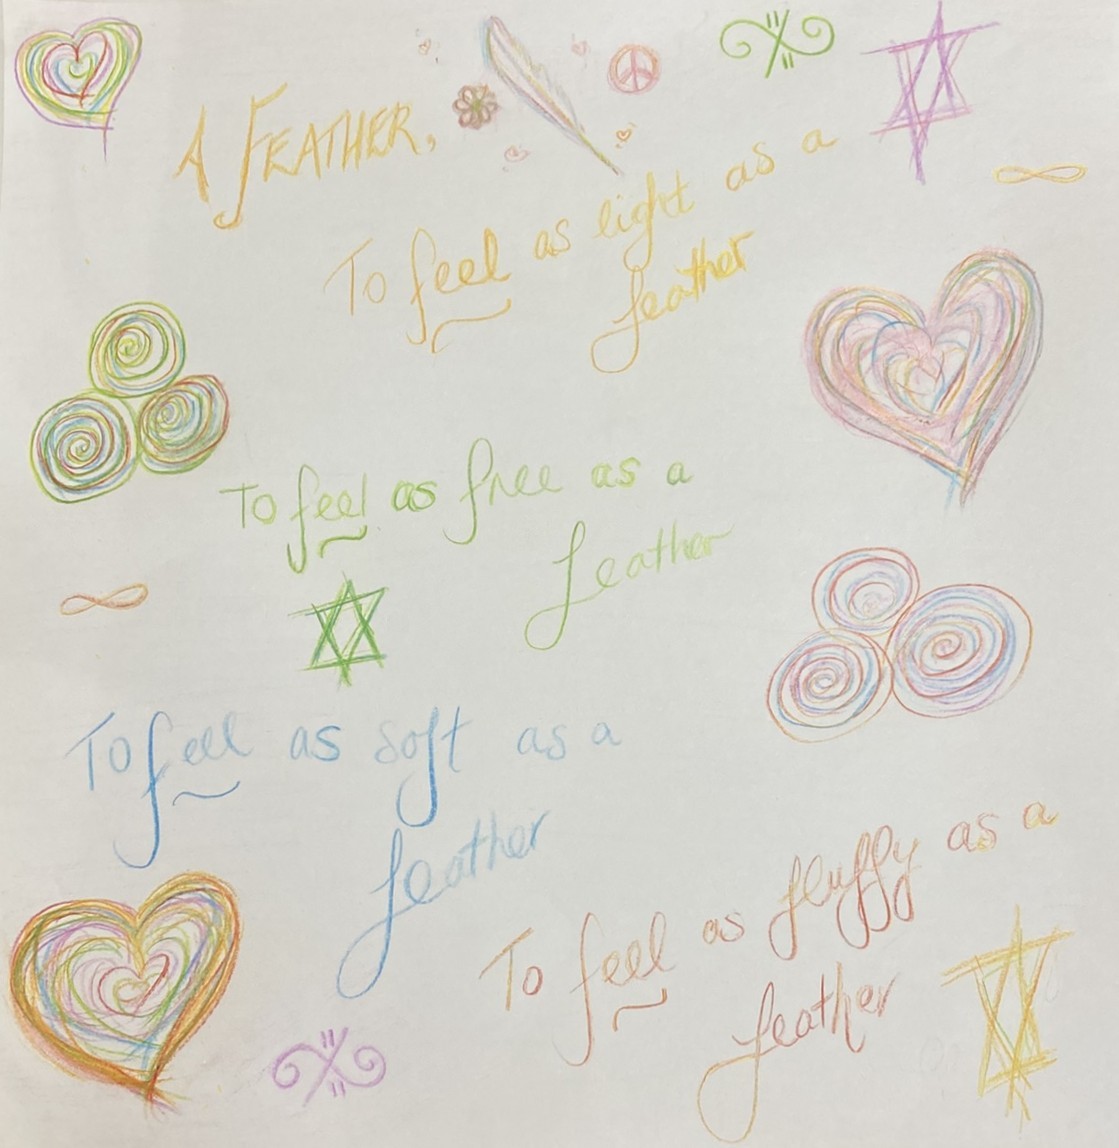 A FEATHER,
To feel as light as a
feather
To feel as free as a
feather
To feel as soft as a
feather
To feel as fluffy as a
feather